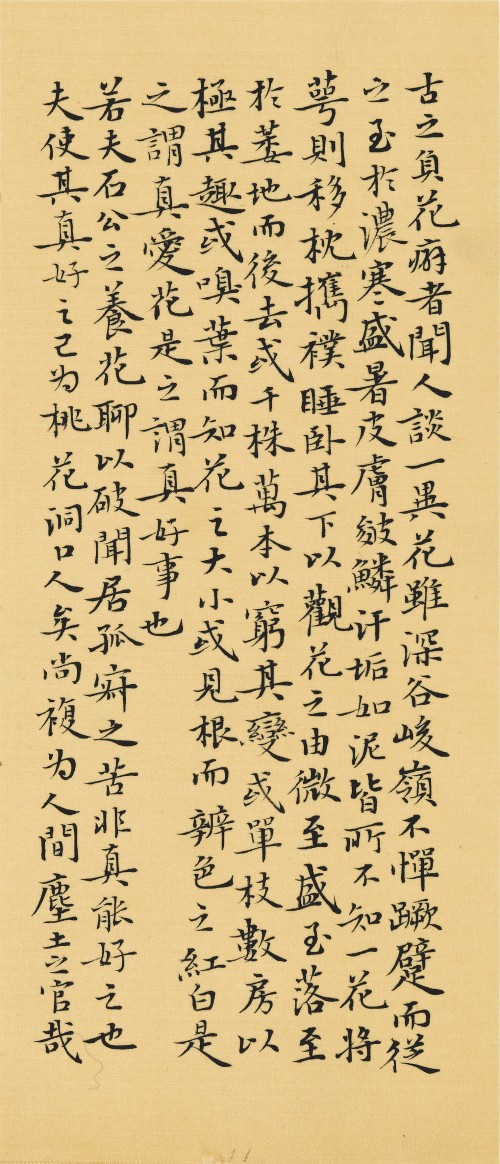 古之負花癖者聞人談一異花雖深谷峻嶺不憚蹶躄而從
之至於濃寒盛暑皮膚皴鱗汗垢如泥皆所不知一花將
萼則移枕攜襆睡卧其下以觀花之由微至盛至落至
於萎地而後去或千株萬本以窮其變或單枝數房以
極其趣或嗅葉而知花之大小或見根而辨色之紅白是
之謂真愛花是之謂真好事也
若夫石公之養花聊以破閒居孤寂之苦非真能好之也
夫使其真好之已为桃花洞口人矣尚複为人間塵土之官哉